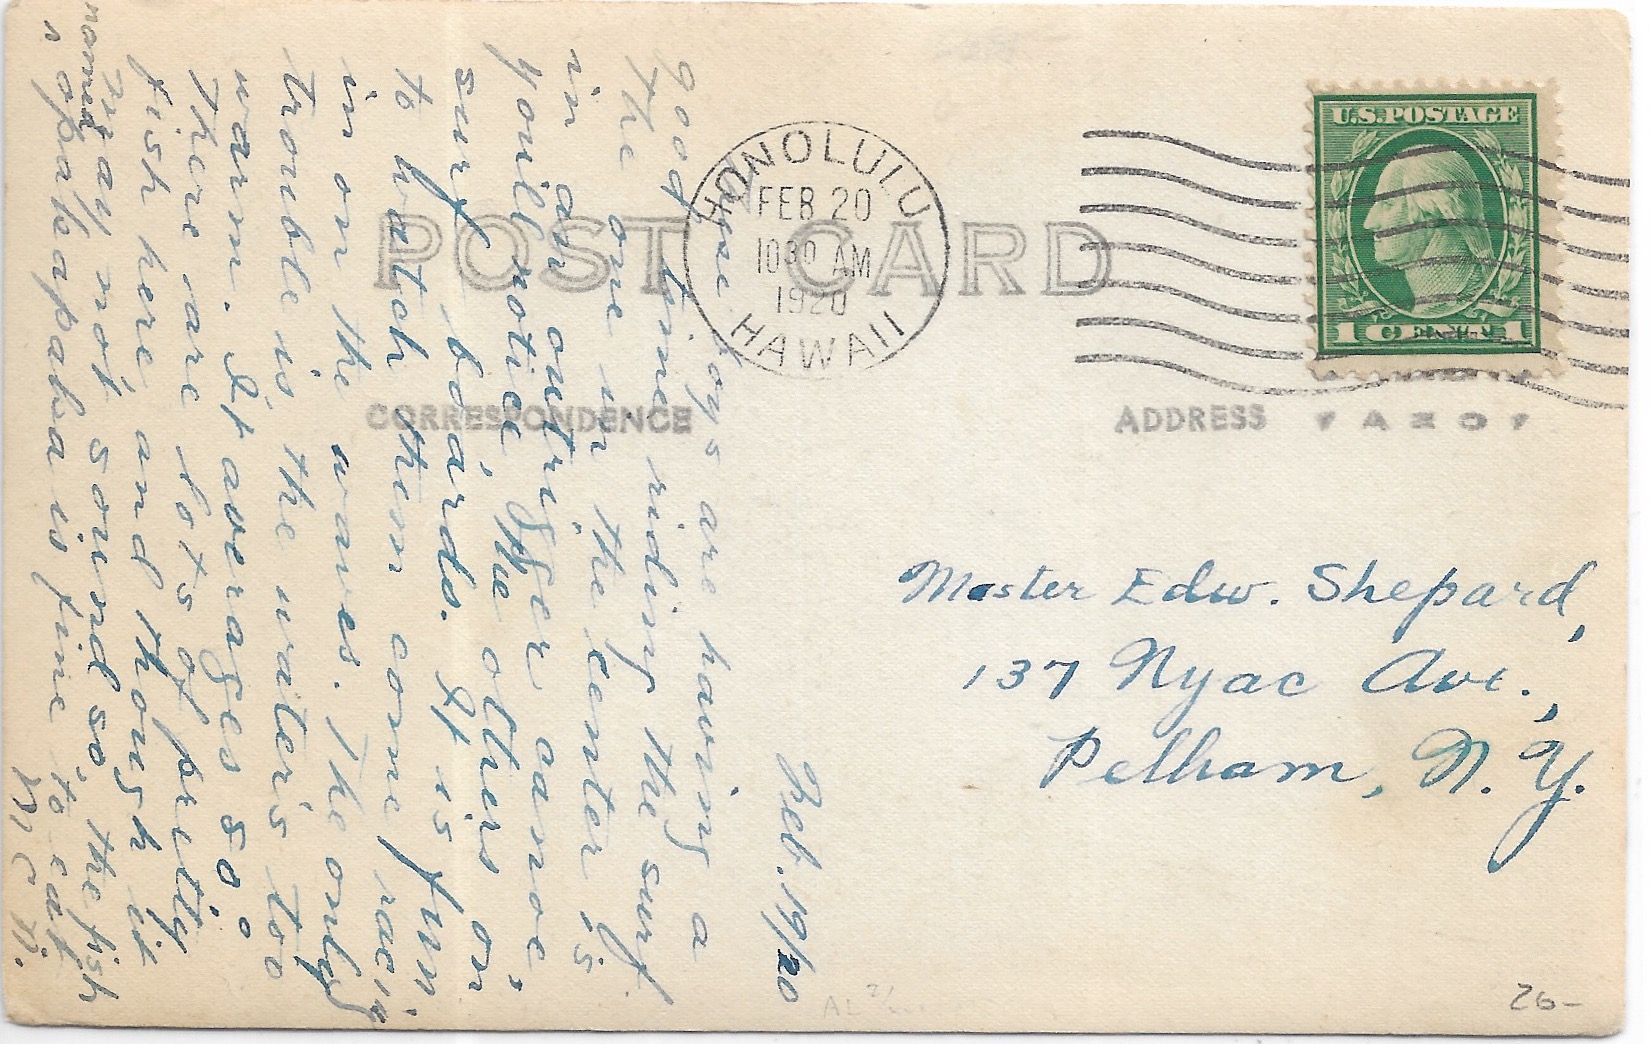 POST CARD
CORRESPONDENCE
ADDRESS
HONOLULU
FEB 20
10 30 AM
1920
HAWAII
U.S. POSTAGE
1 CENT 1
AZO
Feb. 19/20
These boys are having a
good time riding the surf.
The one in the center is
in an outrigger canoe,
you'll notice, the others on
surf boards. It is fun
to watch them come rac'g
in on the waves. The only
trouble is the water's too
warm. It averages 80°
There are lots of pretty
fish here and though it
may not sound so, the fish
named
opakapaka is fine to eat
Master Edw. Shepard,
137 Nyac Ave.,
Pelham, N. Y.
26-